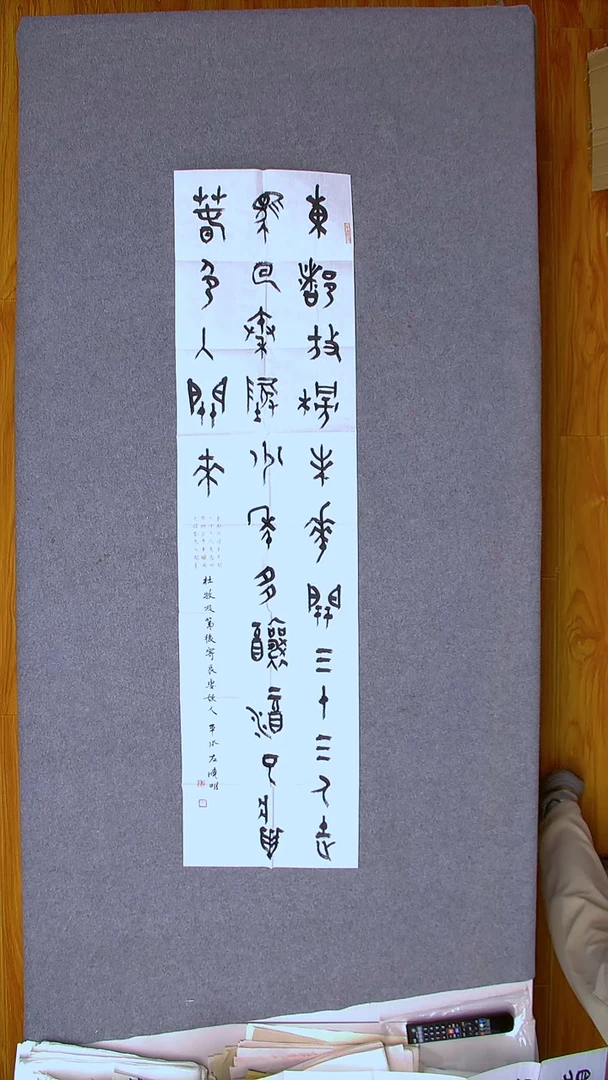 東都放榜未花開三十三人走
馬回秦地少年多釀酒已將
春色入關來
杜牧及第後寄長安故人